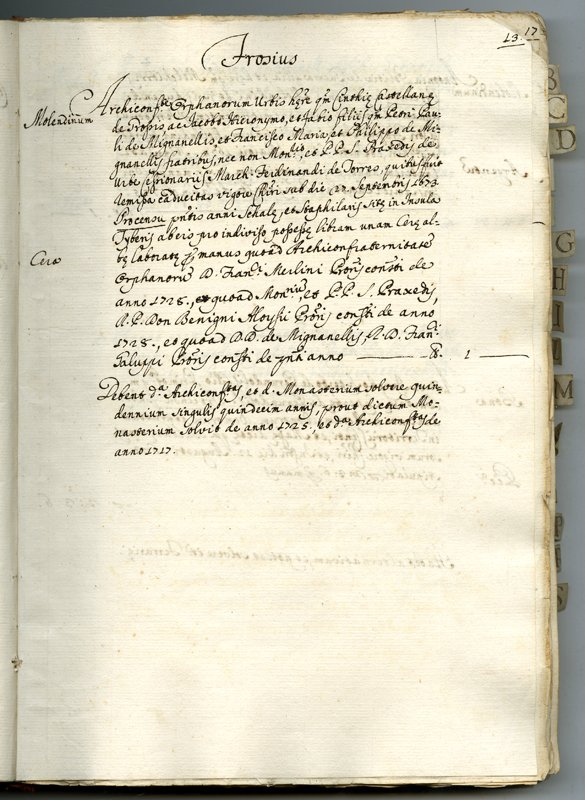 13. 17
Frosius
Molendinum
Archiconf.tas Orphanorum Urbis hęres qm Cinthię Castellanę
de Propis, ac Jacobo Hieronymo, et Fabio filiis qm Petri Pau=
li de Mignanellis, et Francisco Maria, et Philippo de Mi=
gnanellis fratribus, nec non Mon.rio, et P.P. S. Praxedis de
Urbe cessionariis March: Ferdinandi de Torres, quibus fuit
remissa caducitas vigore sub die 27 Septembris 1673
Processu pntis anni Schalę, et Staphilaris sitę in Insula
Tyberis ab eis pro indiviso possesę libram unam Cerę al=
bę laboratę manus quoad Archiconfraternitate
Cera
Orphanorũ D. Fran.ci Merlini Prõris constĩ de
anno 1728., et quoad Mon.riũ, et P.P. S. Praxedis,
R.P. Don Benigni Aloysii Prõris constĩ de anno
1728., et quoad D.D. de Mignanellis R.D. Fran.ci
Galuppi Prõris constĩ de pñti anno — 8. 1 —
Debent d.a Archiconf.tas, et d. Monasterium solvere quin=
dennium singulis quindecim annis, prout dictum Mo=
nasterium solvit de anno 1725. et d.a Archiconf.tas de
anno 1717.